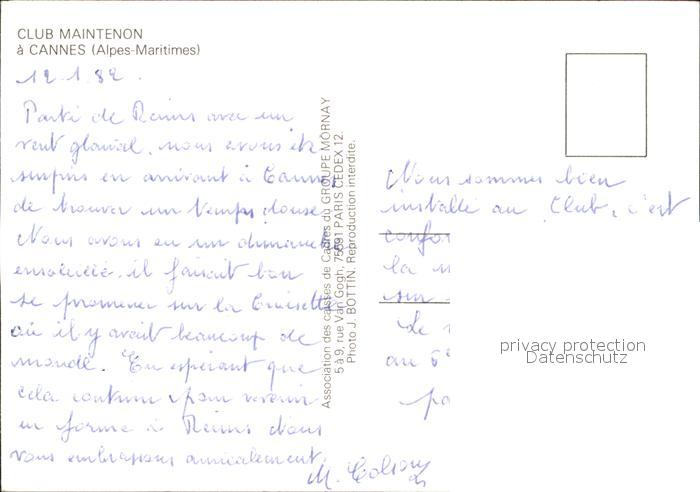 CLUB MAINTENON
à CANNES (Alpes-Maritimes)
12.1.82.
Parti de Reims avec un
vent glacial. nous avons été
surpris en arrivant à Cannes
de trouver un temps douse
Nous avons eu un dimanche
ensoleillé, il faisait bon
se promener sur la Croisette
où il y avait beaucoup de
monde. En espérant que
cela continue pour revenir
en forme à Reims Nous
vous embrassons amicalement.
M.
Association des caisses de Cadres du GROUPE MORNAY
5 à 9, rue Van Gogh, 75591 PARIS CEDEX 12.
Photo J. BOTTIN. Reproduction interdite.
Nous sommes bien
installé au Club, c'est
confor
la
sur
Le
au 6e
privacy protection
Datenschutz